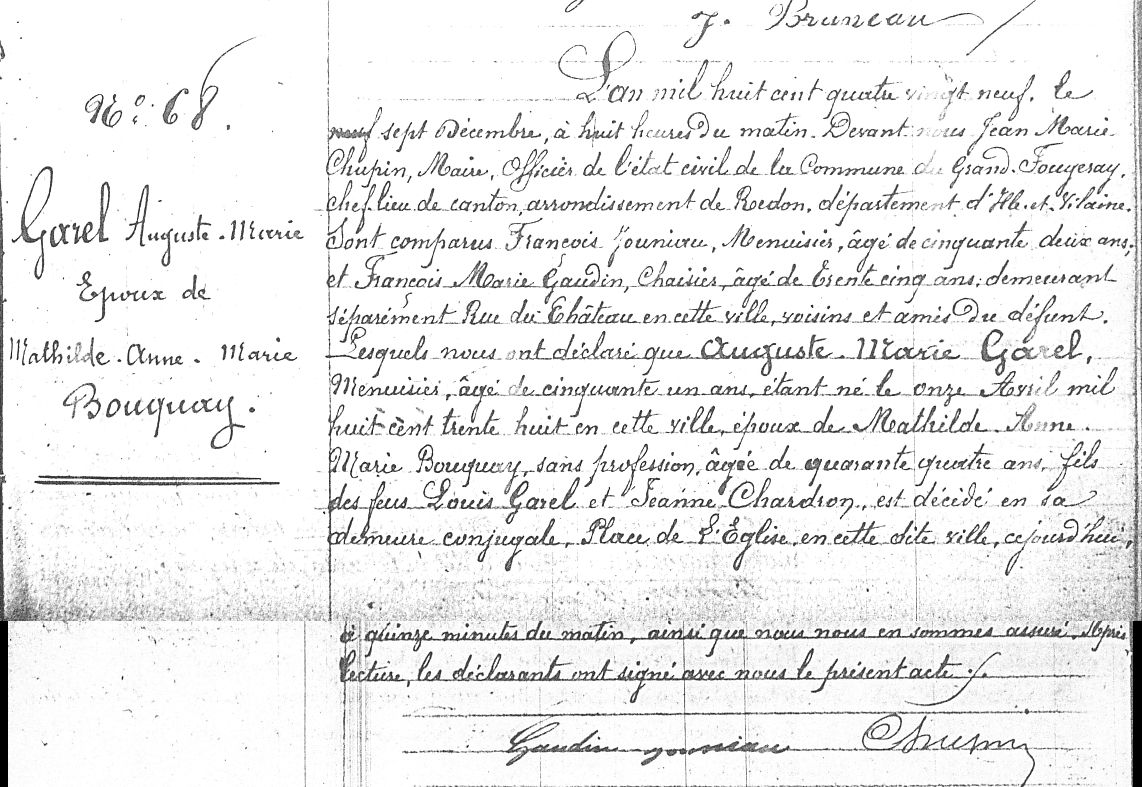 J. Bruneau
N.° 68.
Garel Auguste-Marie
Epoux de
Mathilde-Anne-Marie
Bouquay.
L'an mil huit cent quatre vingt neuf, le
neuf sept Décembre, à huit heures du matin. Devant nous Jean Marie
Chupin, Maire, Officier de l'état civil de la Commune du Grand-Fougeray,
chef-lieu de canton, arrondissement de Redon, département d'Ille-et-Vilaine.
Sont comparus François Jouniau, Menuisier, âgé de cinquante deux ans,
et François Marie Gaudin, Chaisier, âgé de trente cinq ans, demeurant
séparément Rue du Château en cette ville, voisins et amis du défunt.
Lesquels nous ont déclaré que Auguste-Marie Garel,
Menuisier, âgé de cinquante un ans, étant né le onze Avril mil
huit cent trente huit en cette ville, époux de Mathilde-Anne-
Marie Bouquay, sans profession, âgée de quarante quatre ans, fils
des feus Louis Garel et Jeanne Chardron, est décédé en sa
demeure conjugale, Place de l'Eglise, en cette dite ville, cejourd'hui,
à quinze minutes du matin, ainsi que nous nous en sommes assuré. Après
lecture, les déclarants ont signé avec nous le présent acte.
Gaudin Jouniau Chupin